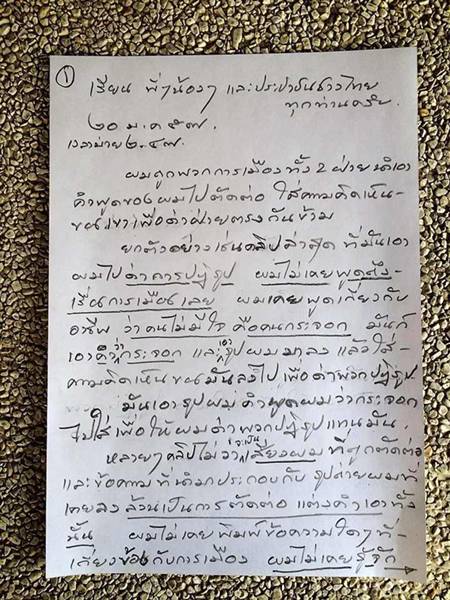 ๑
เรียน พี่ๆน้องๆ และประชาชนชาวไทย
ทุกท่านครับ.
๒๐ ม.ค ๕๗.
เวลาบ่าย ๒.๔๗.
ผมถูกพวกการเมืองทั้ง 2 ฝ่าย นำเอา
คำพูดของผมไปตัดต่อ ใส่ความคิดเห็น-
ของเขาเพื่อด่าฝ่ายตรงกันข้าม
ยกตัวอย่างเช่นคลิปล่าสุด ที่มันเอา
ผมไปด่าการปฏิรูป ผมไม่เคยพูดถึง-
เรื่องการเมืองเลย ผมเคยพูดเกี่ยวกับ
อาชีพ ว่าคนไม่มีใจ คือคนกระจอก มันก็
เอาคำว่ากระจอก และเอารูปผมมาลง แล้วใส่-
ความคิดเห็นของมันลงไป เพื่อด่าพวกปฏิรูป
มันเอารูปผม คำพูดผมว่ากระจอก
ไปใส่ เพื่อให้ผมด่าพวกปฏิรูปแทนมัน.
หลายๆคลิปไม่ว่าจะเป็นเสียงผม ที่ถูกตัดต่อ
และข้อความที่นำมาประกอบกับ รูปถ่ายผมที่
เคยลง ล้วนเป็นการตัดต่อ แต่งคำเอาทั้ง
นั้น ผมไม่เคยพิมพ์ข้อความใดๆที่-
เกี่ยวข้องกับการเมือง ผมไม่เคยรู้จัก